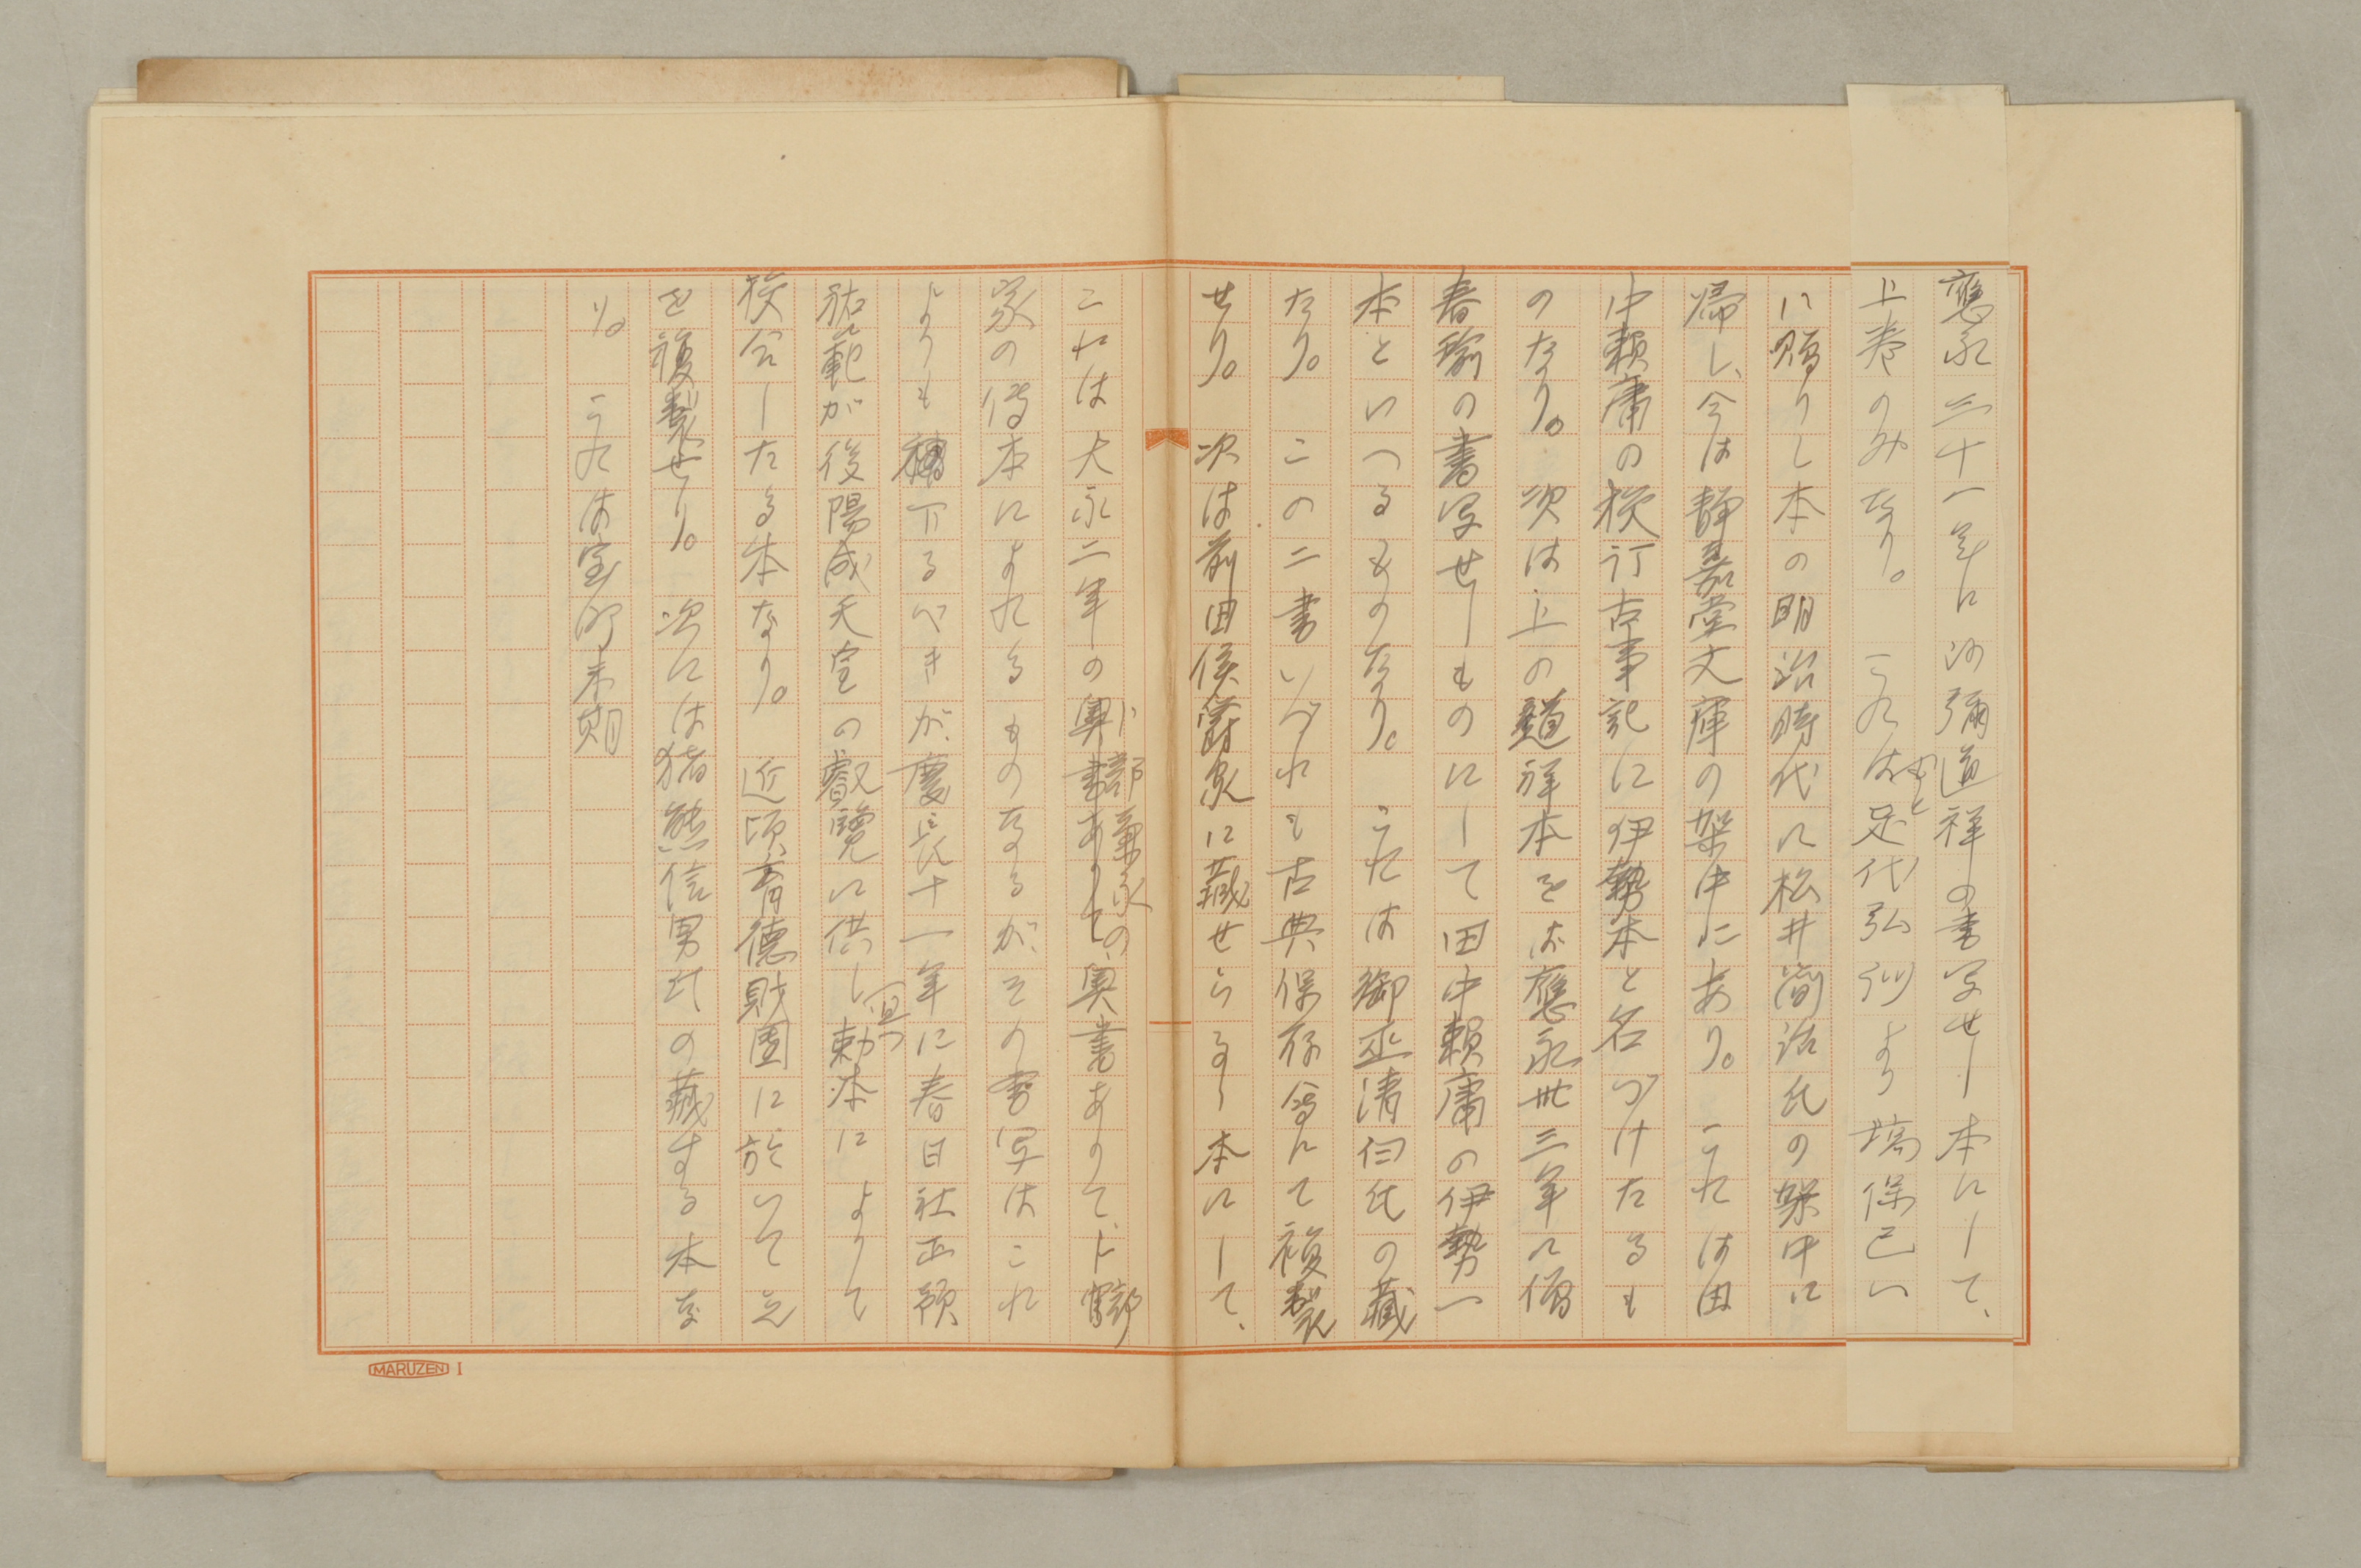 應永三十一年に沙彌道祥の書写せし本にして、
上巻のみなり。これはもと足代弘訓より塙保己一
に贈りし本の明治時代に松井簡治氏の架中に
帰し、今は静嘉堂文庫の架中にあり。これは田
中頼庸の校訂古事記に伊勢本と名づけたるも
のなり。次は上の道祥本をば應永卅三年に僧
春瑜の書写せしものにして田中頼庸の伊勢一
本といへるものなり。これは御巫清白氏の藏
なり。この二書いづれも古典保存會にて複製
せり。次は前田侯爵家に藏せらるゝ本にして、
これは大永二年の卜部兼永の奥書ありて、卜部
家の傳本によれるものなるが、その書写はこれ
よりも稍下るべきが、慶長十一年に春日社正預
祐範が後陽成天皇の叡覧に供し、且つ勅本によりて
校合したる本なり。近頃育德財團に於いて之
を複製せり。次には猪熊信男氏の藏する本な
り。これは室町末期
MARUZEN I